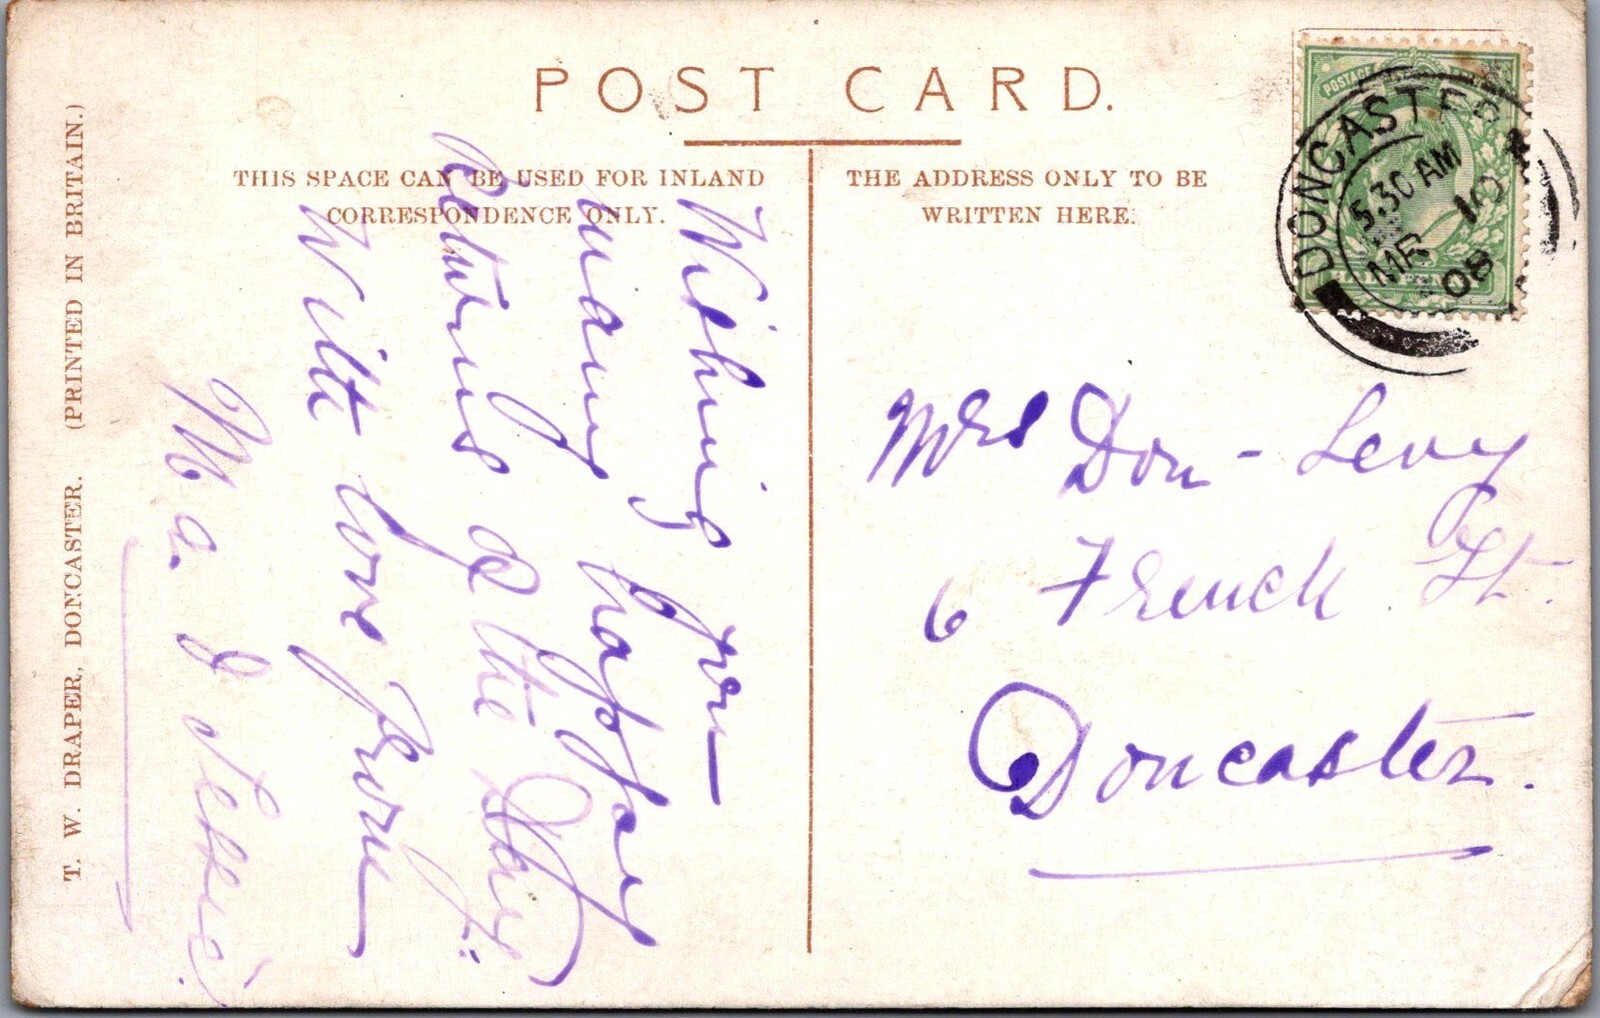 POST CARD.
THIS SPACE CAN BE USED FOR INLAND
CORRESPONDENCE ONLY.
THE ADDRESS ONLY TO BE
WRITTEN HERE.
T. W. DRAPER, DONCASTER. (PRINTED IN BRITAIN.)
POSTAGE
DONCASTER
5.30 AM
MR 10
08
Wishing you
many happy
Returns of the Day.
With love from
Ma.
Mrs Don-Levy
6 French St.
Doncaster.